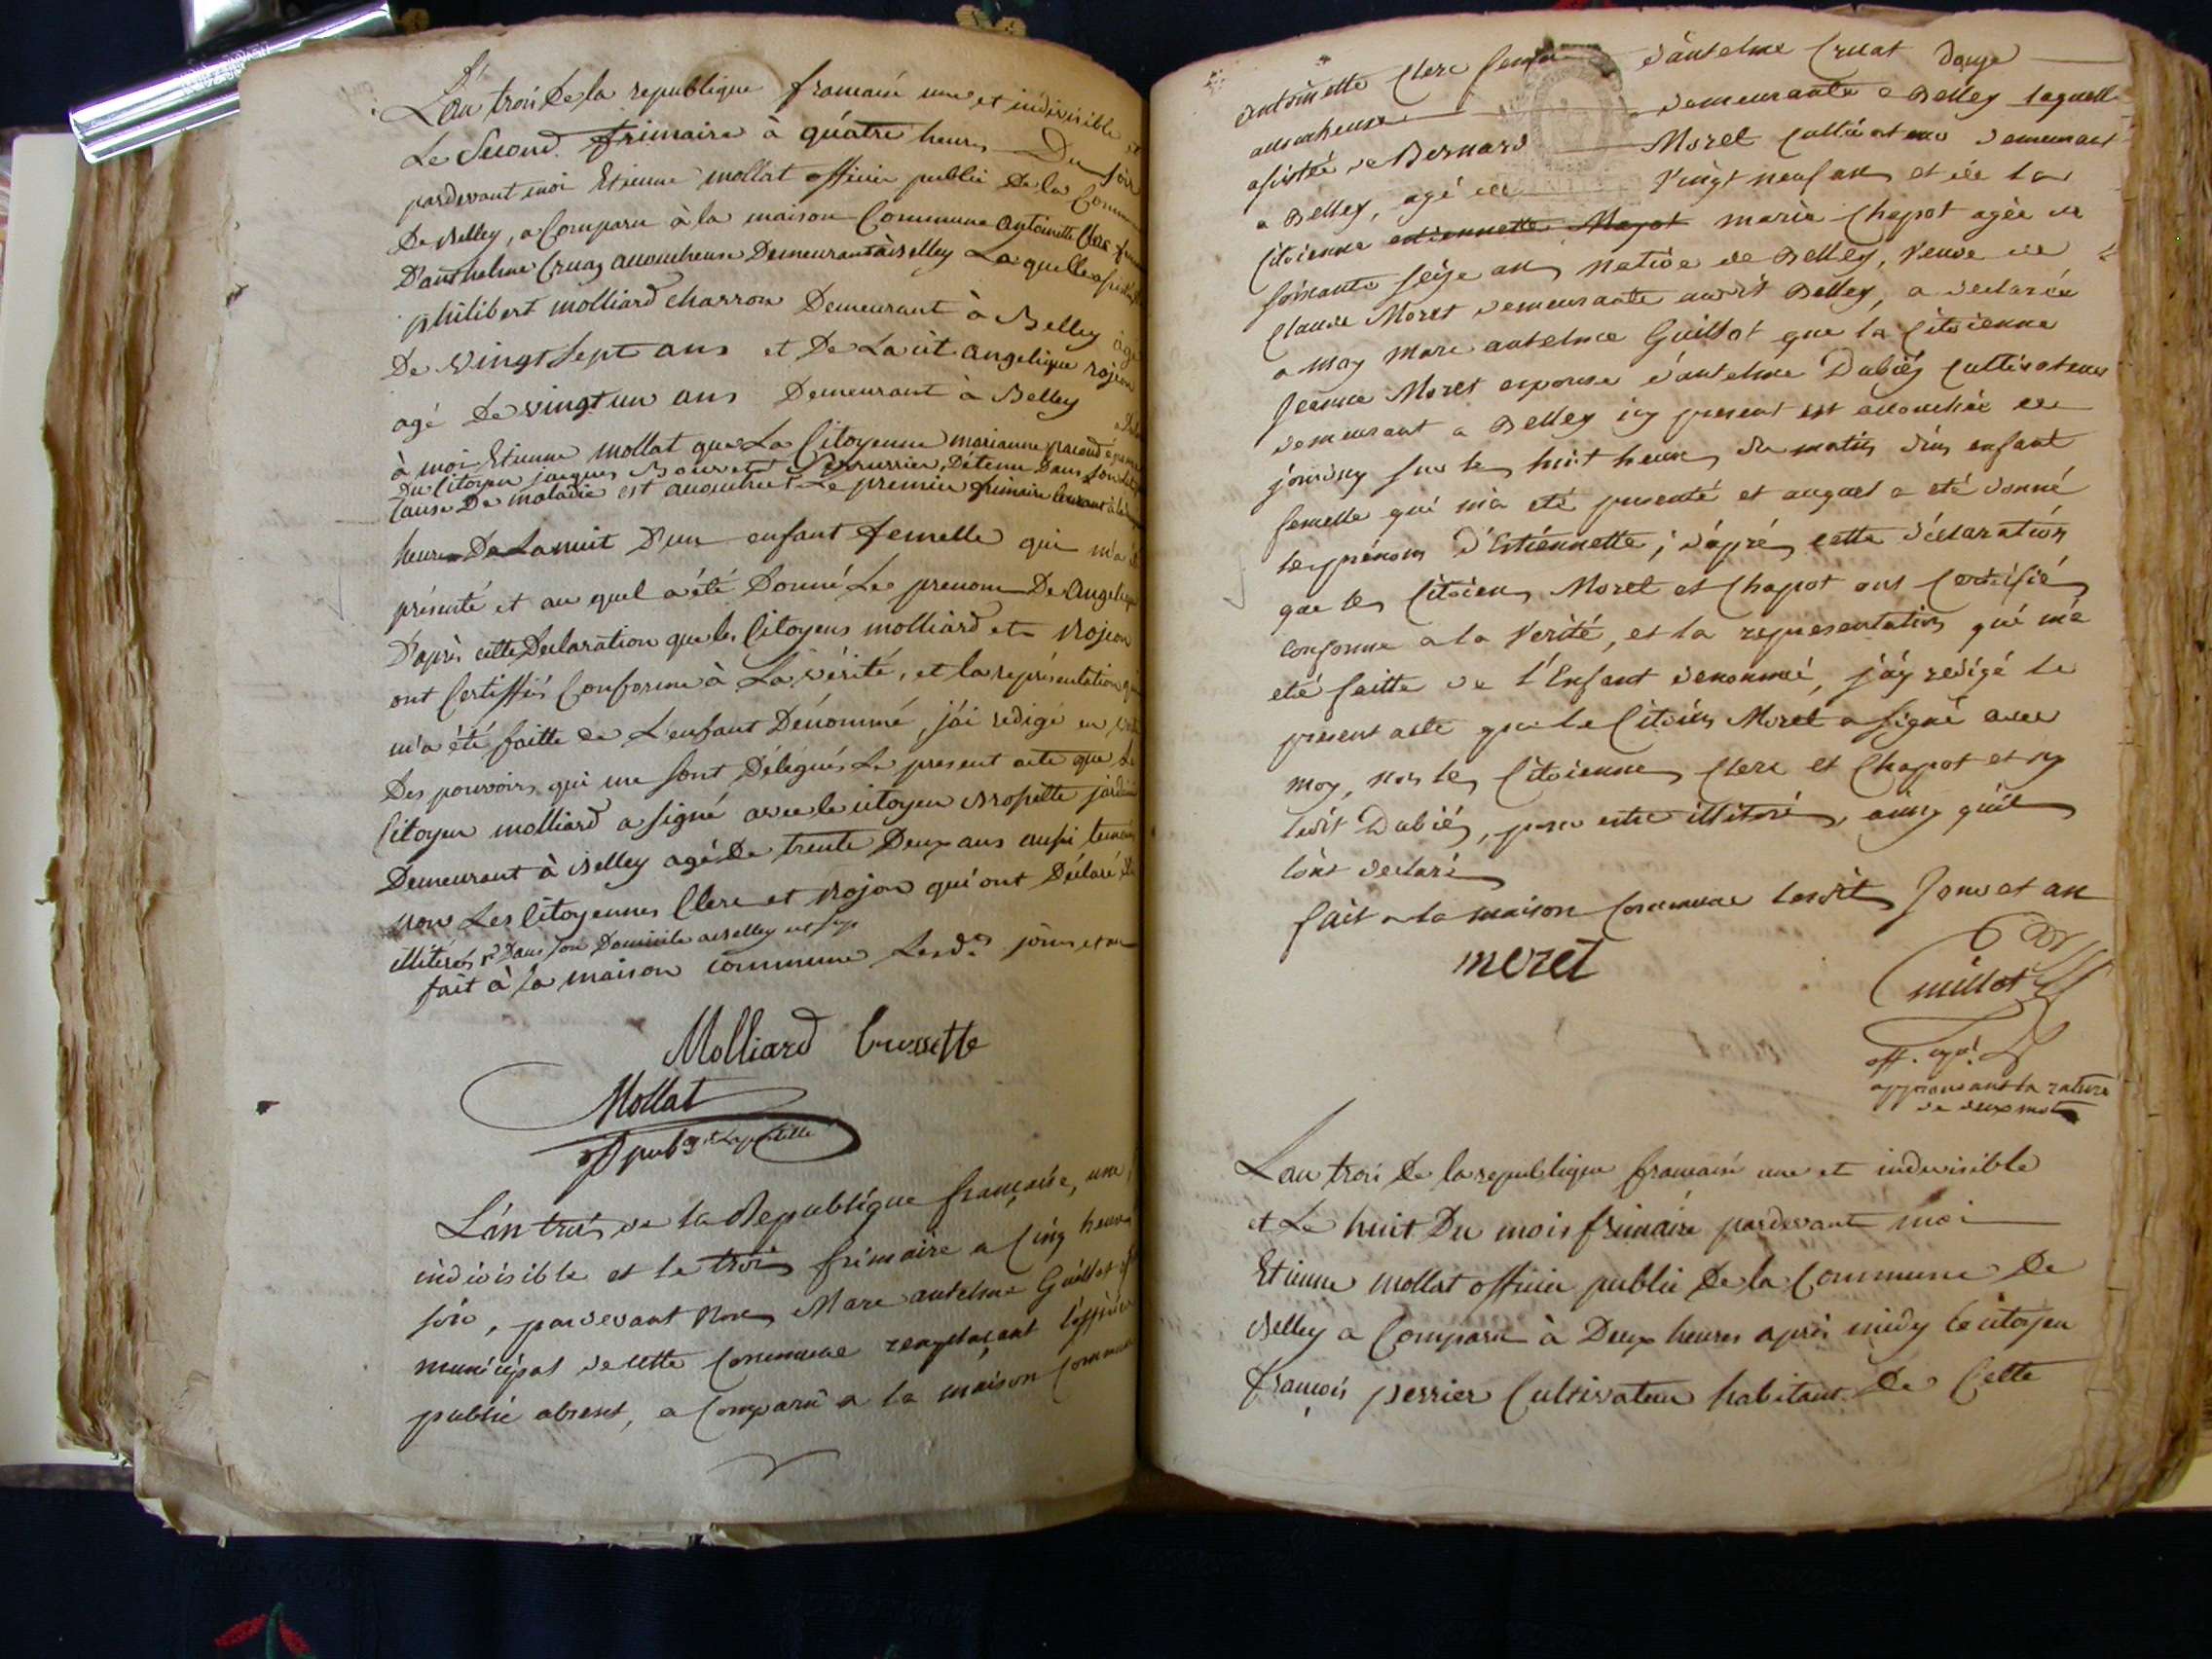 L'an trois de la republique francaise une et indivisible et
Le Second frimaire à quatre heures Du soir
pardevant moi Etienne mollat officier public de la Commune
De Belley, a Comparu à la maison Commune Antoinette Clerc femme
D'anthelme Cruaz accoucheuse Demeurant à Belley Laquelle assistée
philibert molliard charron Demeurant à Belley âgé
De vingt sept ans et De La cit angelique rojeon
agé De vingt un ans Demeurant à Belley
à moi Etienne mollat que La Citoyenne marianne
Du Citoyen jacques Serrurier, Détenu Dans son
Cause De maladie est accouchée Le premier frimaire courant à
heures De La nuit D'un enfant femelle qui m'a été
présenté et au quel a été Donné Le prenom De Angelique
D'après cette Declaration que les Citoyens molliard et Rojeon
ont Certiffiés Conforme à La vérité, et la représentation qui
m'a été faitte de L'enfant Dénommé, j'ai redigé en vertu
Des pouvoirs qui me sont Délégués Le present acte que Le
Citoyen molliard a signé avec le citoyen
Demeurant à Belley agé De trente Deux ans aussi temoin
non Les Citoyennes Clerc et Rojon qui ont Déclaré être
illitérés Dans son Domicile a Belley
fait à la maison commune Lesd.s jour et an
Molliard Brossette
Mollat
off pub
L'an trois de la Republique française, une
indivisible et le trois frimaire a Cinq heures
soir, pardevant Nous Marc antelme Guillot off
municipal de cette Commune remplaçant l'officier
public absent, a Comparu a la maison Commune
antoinette Clerc femme d'antelme Cruat
accoucheuse demeurante a Belley laquelle
assistée de Bernard Moret cultivateur demeurant
a Belley, agé de Vingt neuf ans et de la
Citoienne etiennette Mayot marie Chapot agée de
soixante seize ans native de Belley, veuve de
Claude Moret demeurante audit Belley, a declarée
a moy Marc antelme Guillot que la Citoienne
Jeanne Moret espouse d'antelme Dubiés cultivateur
demeurant a Belley icy present est accouchée ce
jourdhuy sur les huit heures du matin d'un enfant
femelle qui m'a été presenté et auquel a été donné
le prénom d'Estiennette; d'aprés cette déclaration
que les Citoiens Moret et Chapot ont Certifié
conforme a la Verité, et la representation qui m'a
eté faitte de l'Enfant denommé, j'ay redigé le
present acte que le Citoien Moret a signé avec
moy, non les Citoiennes Clerc et Chapot et ny
ledit Dubiés, pour estre illiteré, ainsy qu'ils
l'ont declaré
fait a la maison Commune lesdits Jour et an
moret
Guillot
off.
approuvant la rature
de deux mots
L'an trois De la republique francaise une et indivisible
et Le huit Du mois frimaire pardevant moi
Etienne mollat officier public De la Commune De
Belley a Comparu à Deux heures après midy le citoyen
françois perrier Cultivateur habitant De Cette